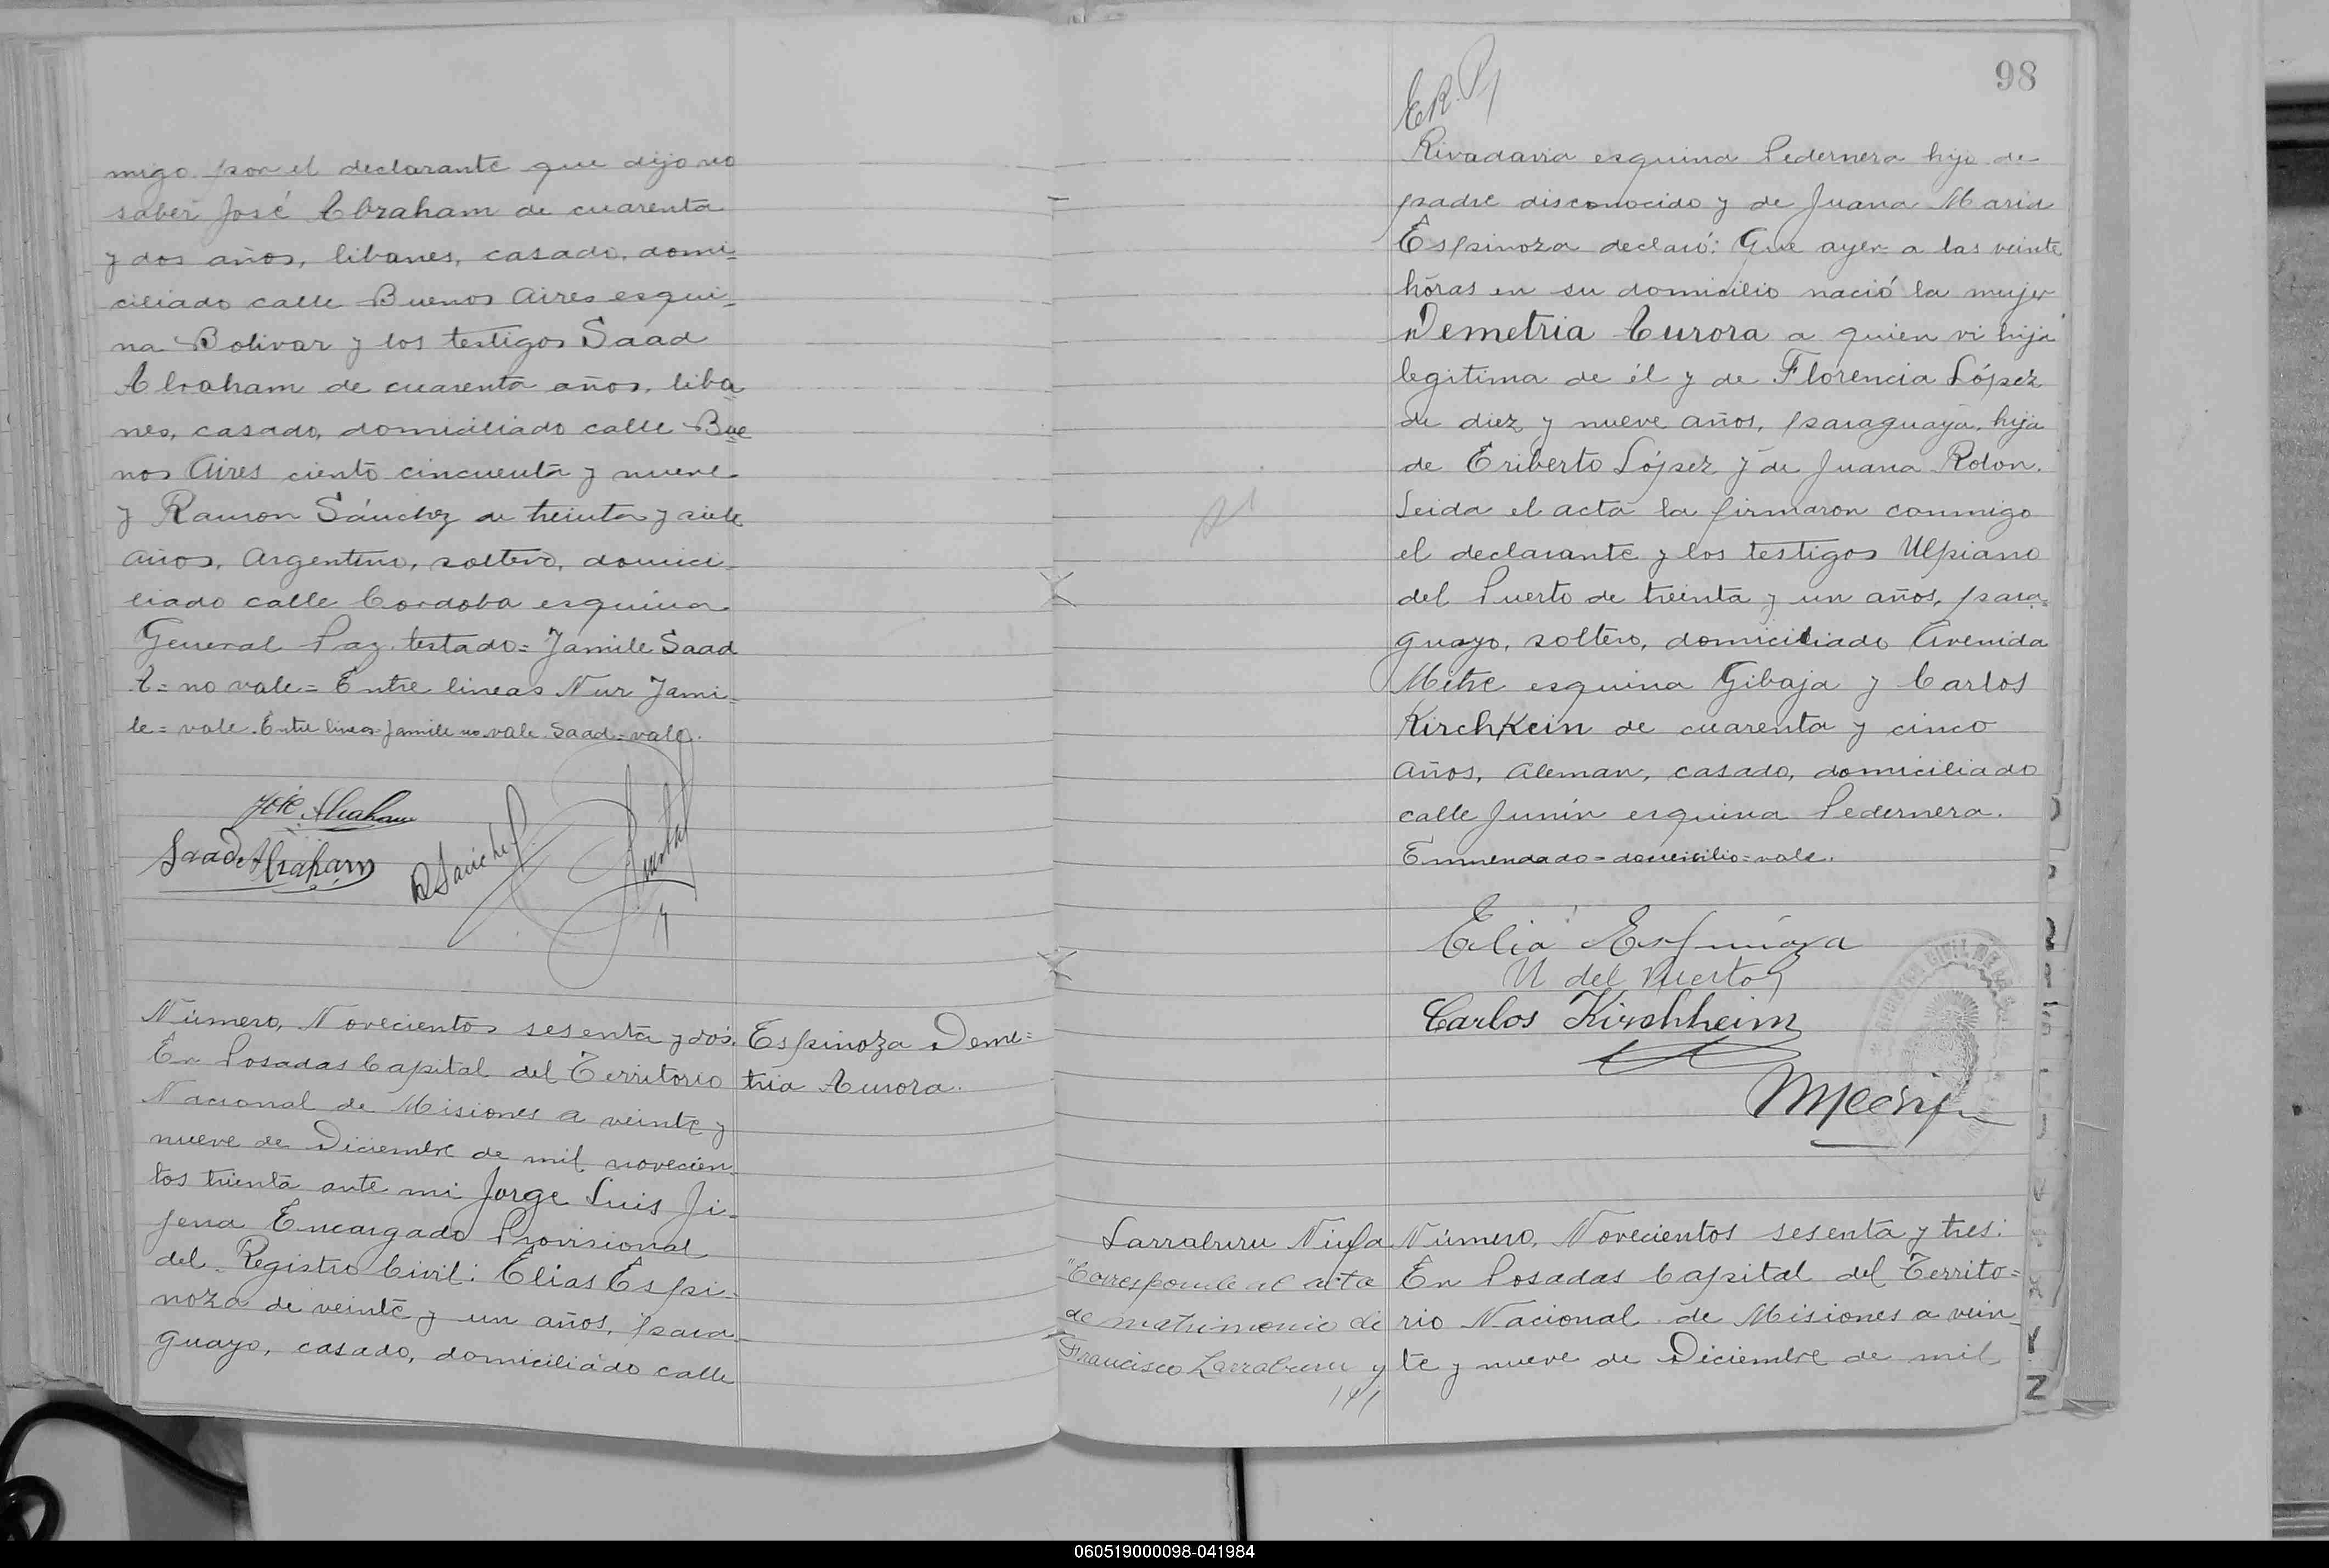 migo por el declarante que dijo no
saber José Abraham de cuarenta
y dos años, libanes, casado, domi=
ciliado calle Buenos Aires esqui=
na Bolivar y los testigos Saad
Abraham de cuarenta años, liba
nes, casado, domiciliado calle Bue
nos Aires ciento cincuenta y nueve
y Ramon Sánchez de treinta y siete
años, Argentino, soltero, domici-
liado calle Cordoba esquina
General Paz. testado= Jamile Saad
A= no vale= Entre lineas Nur Jami=
le= vale. Entre lineas Jamile no vale. Saad=vale.
José Abraham
Saad Abraham
R Sanchez
Número, Novecientos sesenta y dós.
En Posadas Capital del Territorio
Nacional de Misiones a veinte y
nueve de Diciembre de mil novecien-
tos trienta ante mi Jorge Luis Ji-
jena Encargado Provisional
del Registro Civil: Elias Espi-
noza de veinte y un años, para-
guayo, casado, domiciliado calle
Espinoza Deme=
tria Aurora.
98
E.R.P/
Rivadavia esquina Pedernera hijo de
padre disconocido y de Juana Maria
Espinoza declaró: Que ayer a las veinte
horas en su domicilio nació la mujer
Demetria Aurora a quien vi hija
legitima de él y de Florencia López
de diez y nueve años, paraguaya, hija
de Eriberto López y de Juana Rolon.
Leida el acta la firmaron conmigo
el declarante y los testigos Ulpiano
del Puerto de treinta y un años, para-
guayo, soltero, domiciliado Avenida
Mitre esquina Gibaja y Carlos
Kirchkein de cuarenta y cinco
años, Aleman, casado, domiciliado
calle Junín esquina Pedernera.
Enmendado=domicilio=vale.
Elia Espinoza
U del Puerto
Carlos Kirchheim
REGISTRO CIVIL
Larraburu Niufa
"Corresponde al acta
de matrimonio de
Francisco Larraburu y
141
Número, Novecientos sesenta y tres:
En Posadas Capital del Territo=
rio Nacional de Misiones a vein-
te y nueve de Diciembre de mil
060519000098-041984